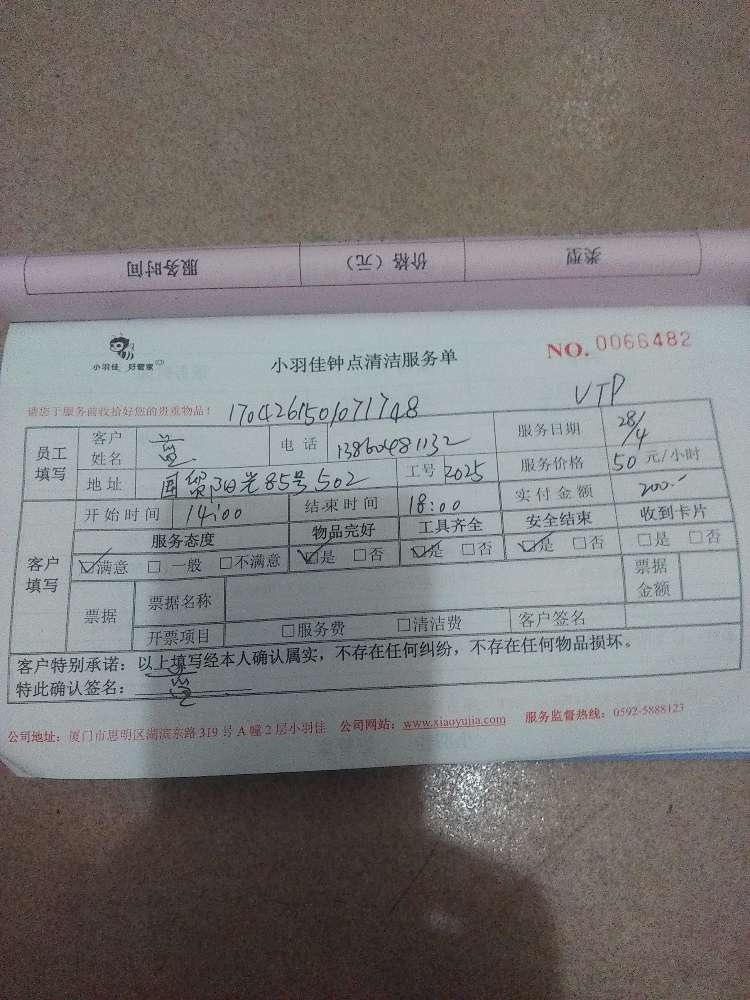 服务时间 价格（元） 类型
小羽佳 好管家
小羽佳钟点清洁服务单
NO. 0066482
请您于服务前收拾好您的贵重物品！ 1704261501071748 VTP
员工填写 客户姓名 蓝 电话 13860481132 服务日期 28/4
地址 国贸阳光85号502 工号 2025 服务价格 50 元/小时
开始时间 14:00 结束时间 18:00 实付金额 200.-
客户填写 服务态度 物品完好 工具齐全 安全结束 收到卡片
☑满意 □一般 □不满意 ☑是 □否 ☑是 □否 ☑是 □否 □是 □否
票据 票据名称 票据金额
开票项目 □服务费 □清洁费 客户签名
客户特别承诺：以上填写经本人确认属实，不存在任何纠纷，不存在任何物品损坏。
特此确认签名：蓝
公司地址：厦门市思明区湖滨东路319号A幢2层小羽佳 公司网站：www.xiaoyujia.com 服务监督热线：0592-5888123